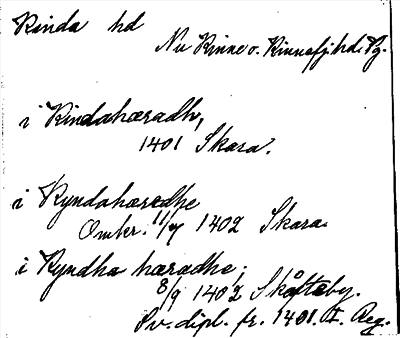 Kinda hd
Nu Kinne o. Kinnefj. hd. Vg.
i Kindahæradh,
1401 Skara.
i Kyndahæradhe
Omkr. 11/7 1402 Skara
i Kyndha hæradhe,
8/9 1402 Skåfteby.
Sv. dipl. fr. 1401. I. Reg.